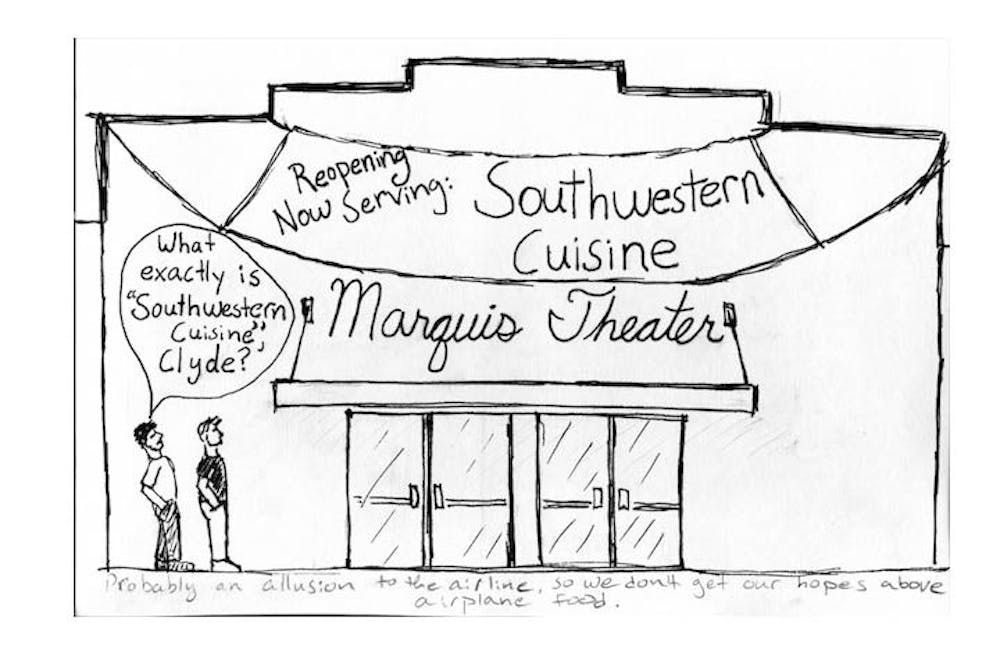 Reopening
Now Serving:
Southwestern
Cuisine
Marquis Theater
What
exactly is
"Southwestern
Cuisine",
Clyde?
Probably an allusion to the airline, so we don't get our hopes above
airplane food.